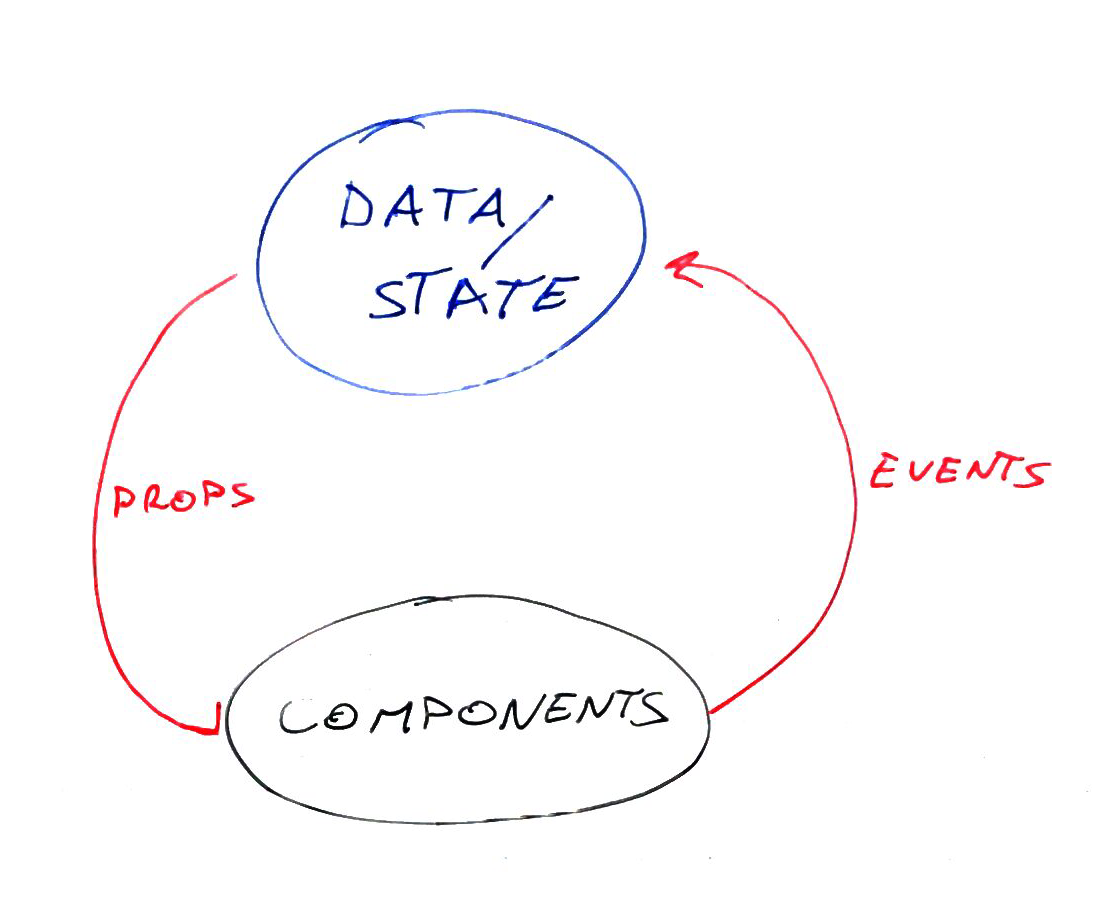 DATA/
STATE
PROPS
EVENTS
COMPONENTS